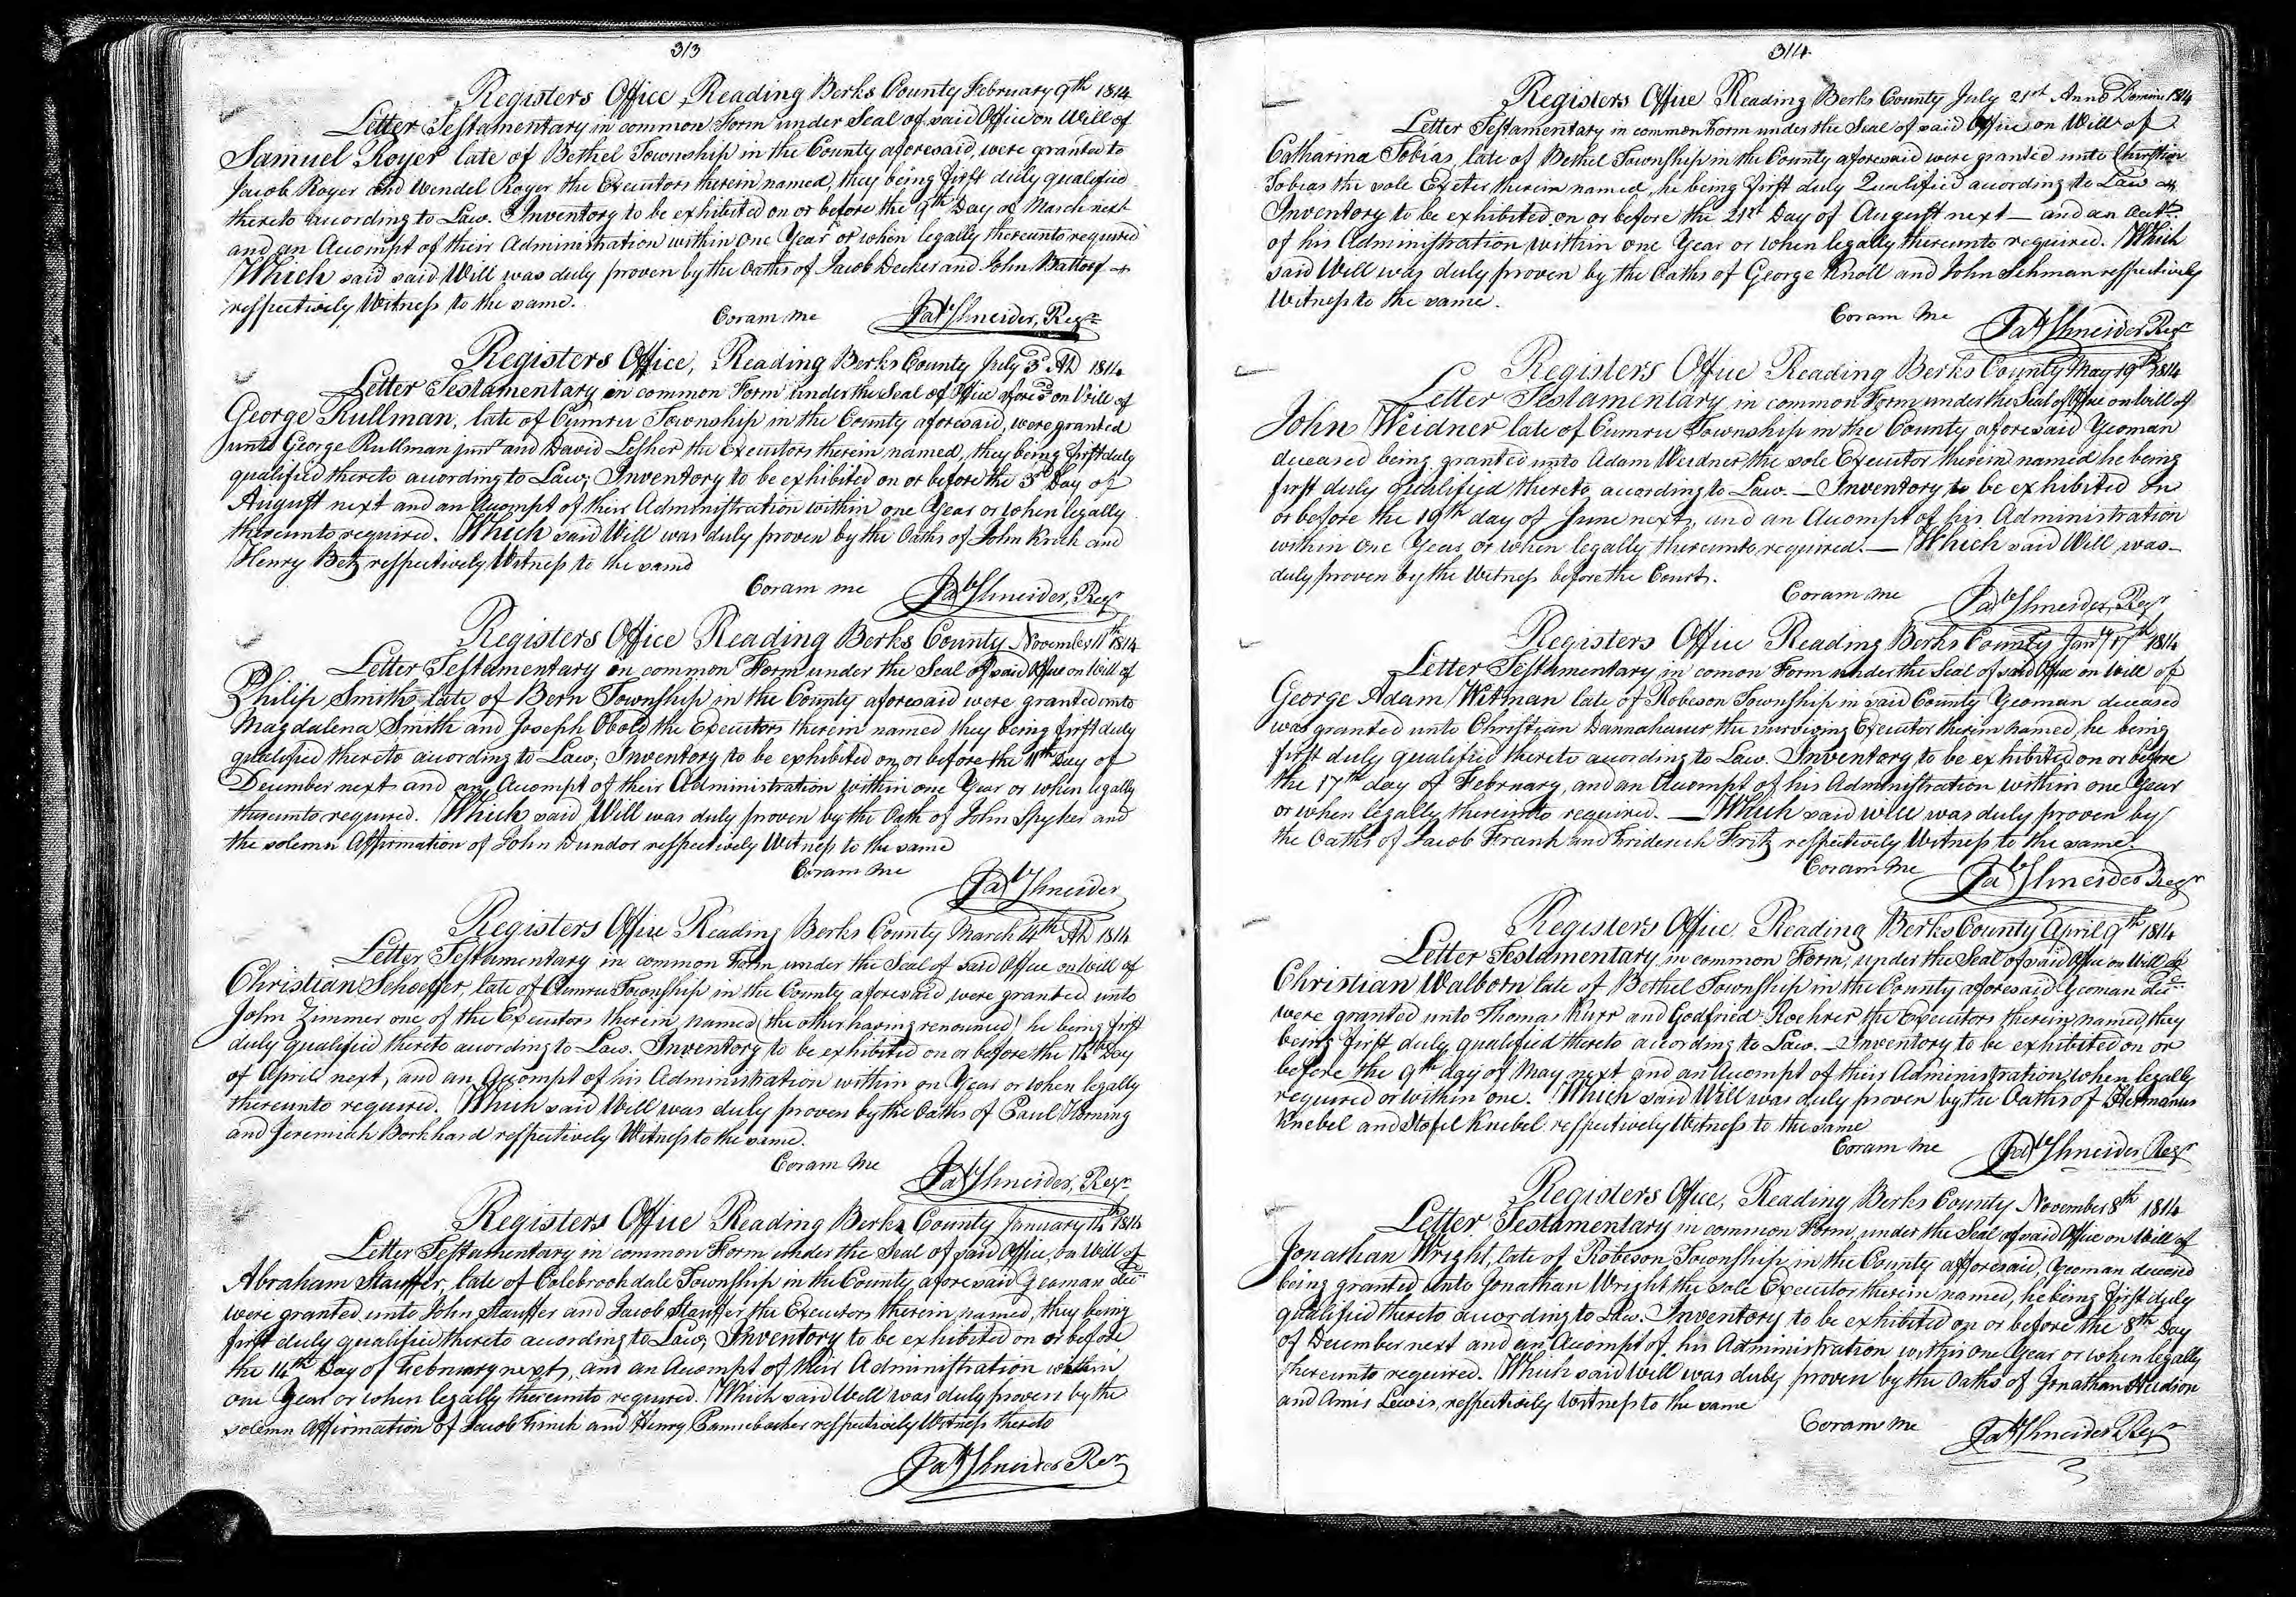 313
Registers Office Reading Berks County February 9th 1814
Letter Testamentary in common Form under Seal of said Office on Will of
Samuel Royer late of Bethel Township in the County aforesaid, were granted to
Jacob Royer and Wendel Royer the Executors therein named, they being first duly qualified
thereto according to Law. Inventory to be exhibited on or before the 9th Day of March next
and an Accompt of their Administration within one Year or when legally thereunto required
Which said said Will was duly proven by the Oaths of Jacob Decker and John Battorf
respectively Witness to the same.
Coram me Jab Shneider, Regr
Registers Office, Reading Berks County July 3d AD 1814
Letter Testamentary in common Form under the Seal of Office aforesd on Will of
George Rullman, late of Cumru Township in the County aforesaid, were granted
unto George Rullman junr and David Lesher the Executors therein named, they being first duly
qualified thereto according to Law; Inventory to be exhibited on or before the 3d Day of
August next and an Accompt of their Administration within one Year or when legally
thereunto required. Which said Will was duly proven by the Oaths of John Krick and
Henry Betz respectively Witness to the same
Coram me Jab Shneider, Regr
Registers Office Reading Berks County November 11th 1814
Letter Testamentary in common Form under the Seal of said Office on Will of
Philip Smith, late of Bern Township in the County aforesaid were granted unto
Magdalena Smith and Joseph Obold the Executors therein named they being first duly
qualified thereto according to Law; Inventory to be exhibited on or before the 11th Day of
December next and an Accompt of their Administration within one Year or when legally
thereunto required. Which said Will was duly proven by the Oath of John Spyker and
the solemn Affirmation of John Dundor respectively Witness to the same
Coram me Jab Shneider
Registers Office Reading Berks County March 14th AD 1814
Letter Testamentary in common Form under the Seal of said Office on Will of
Christian Schoeffer, late of Cumru Township in the County aforesaid were granted unto
John Zimmer one of the Executors therein named (the other having renounced) he being first
duly qualified thereto according to Law. Inventory to be exhibited on or before the 14th Day
of April next, and an Accompt of his Administration within on Year or when legally
thereunto required. Which said Will was duly proven by the Oaths of Paul Fleming
and Jeremiah Borkhard respectively Witness to the same.
Coram me Jab Shneider, Regr
Registers Office Reading Berks County January 14th 1814
Letter Testamentary in common Form under the Seal of said Office, on Will of
Abraham Stauffer, late of Colebrookdale Township in the County aforesaid yeoman decd
were granted unto John Stauffer and Jacob Stauffer the Executors therein named, they being
first duly qualified thereto according to Law; Inventory to be exhibited on or before
the 14th Day of February next, and an Accompt of their Administration within
one Year or when legally thereunto required. Which said Will was duly proven by the
solemn Affirmation of Jacob Finch and Henry Pannebacker respectively Witness thereto
Jab Shneider Regr
314
Registers Office Reading Berks County July 21st Anno Domini 1814
Letter Testamentary in common Form under the Seal of said Office on Will of
Catharina Tobias, late of Bethel Township in the County aforesaid were granted unto Christian
Tobias the sole Exeter therein named, he being first duly Qualified according to Law
Inventory to be exhibited on or before the 21st Day of August next — and an acct
of his Administration within one Year or when legally thereunto required. Which
said Will was duly proven by the Oaths of George Knoll and John Sehman respectively
Witness to the same.
Coram me Jab Shneider Regr
Registers Office Reading Berks County May 19th 1814
Letter Testamentary in common Form under the Seal of Office on Will of
John Weidner late of Cumru Township in the County aforesaid Yeoman
deceased being granted unto Adam Weidner the sole Executor therein named he being
first duly qualified thereto according to Law. — Inventory to be exhibited on
or before the 19th day of June next, and an Accompt of his Administration
within one Year or when legally thereunto required. — Which said Will was
duly proven by the Witness before the Court.
Coram me Jab Shneider, Regr
Registers Office Reading Berks County Jany 17th 1814
Letter Testamentary in comon Form under the Seal of said Office on Will of
George Adam Witman late of Robeson Township in said County Yeoman deceased
was granted unto Christian Dannahauer the surviving Executor therein named, he being
first duly qualified thereto according to Law. Inventory to be exhibited on or before
the 17th day of February, and an Accompt of his Administration within one Year
or when legally thereunto required. — Which said will was duly proven by
the Oaths of Jacob Frank and Friderich Fritz respectively Witness to the same.
Coram me Jab Shneider Regr
Registers Office Reading Berks County April 9th 1814
Letter Testamentary in common Form, under the Seal of said Office on Will of
Christian Walborn late of Bethel Township in the County aforesaid Yeoman decd
were granted unto Thomas Kurr and Godfried Roehrer the Executors therein named, they
being first duly qualified thereto according to Law. — Inventory to be exhibited on or
before the 9th day of May next and an Accompt of their Administration when legally
required or within one. Which said Will was duly proven by the Oaths of Hermanus
Knebel and Stofel Knebel respectively Witness to the same
Coram me Jab Shneider Regr
Registers Office, Reading Berks County November 8th 1814
Letter Testamentary in common Form, under the Seal of said Office on Will of
Jonathan Wright, late of Robeson Township in the County afforesaid, Yeoman deceased
being granted unto Jonathan Wright the sole Executor therein named, he being first duly
qualified thereto according to Law. Inventory to be exhibited on or before the 8th Day
of December next and an Accompt of his Administration within one Year or when legally
thereunto required. Which said Will was duly proven by the Oaths of Jonathan
and Amis Lewis, respectively Witness to the same
Coram me Jab Shneider Regr